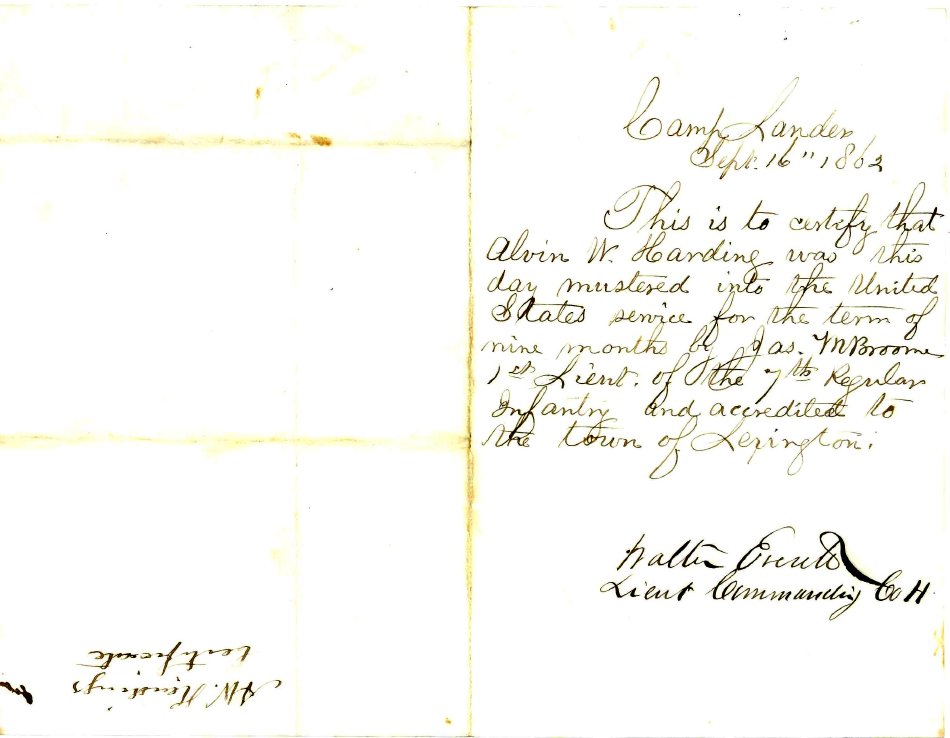 Camp Lander
Sept. 16" 1862
This is to certify that
Alvin W. Harding was this
day mustered into the United
States service for the term of
nine months by Jas. M Broome
1st Lieut. of the 7th Regular
Infantry and accredited to
the town of Lexington.
Walter Everett
Lieut Commanding Co H.
A W. Harding's
Certificate